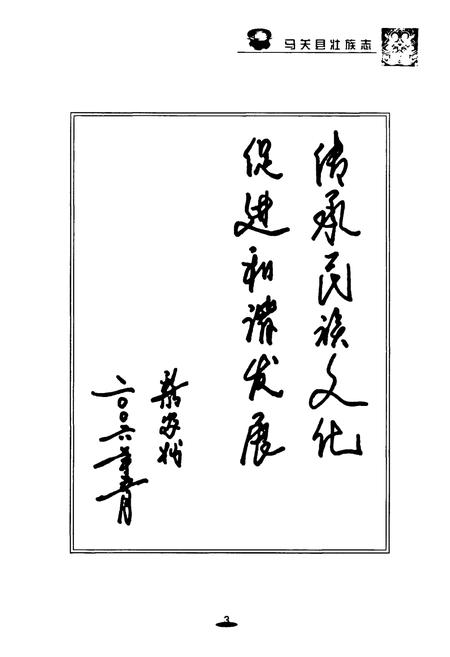 马关县壮族志
传承民族文化
促进和谐发展
二〇〇六年五月
3